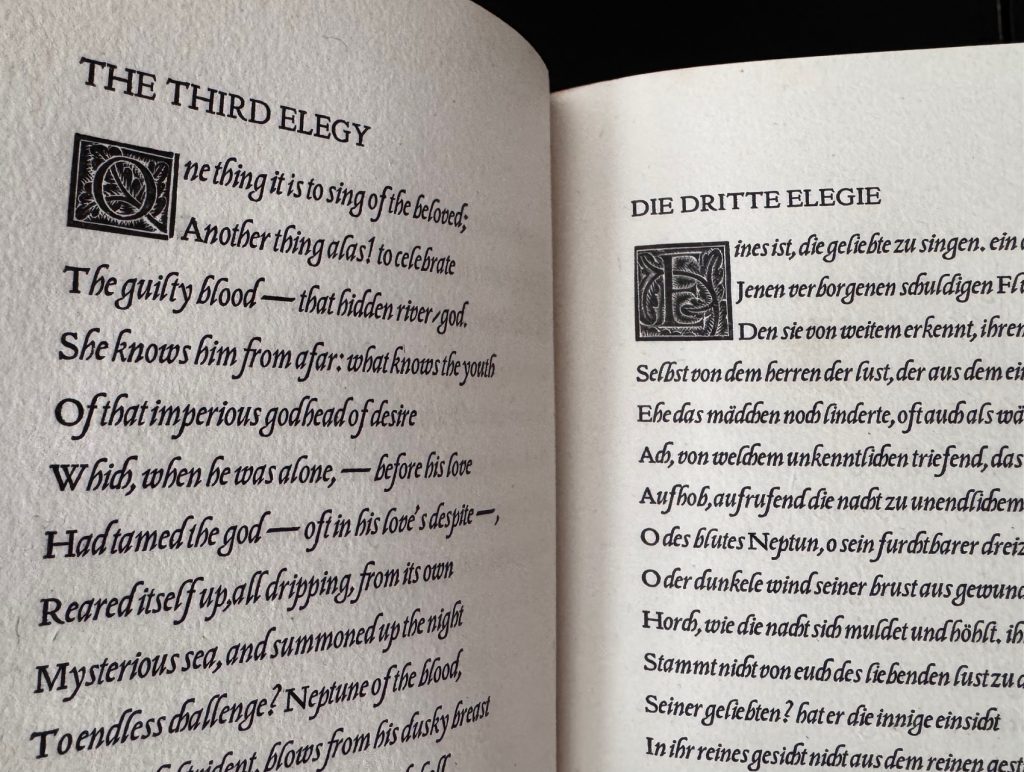 THE THIRD ELEGY
One thing it is to sing of the beloved;
Another thing alas! to celebrate
The guilty blood — that hidden river-god.
She knows him from afar: what knows the youth
Of that imperious godhead of desire
Which, when he was alone, — before his love
Had tamed the god — oft in his love's despite —,
Reared itself up, all dripping, from its own
Mysterious sea, and summoned up the night
To endless challenge? Neptune of the blood,
strident, blows from his dusky breast
DIE DRITTE ELEGIE
Eines ist, die geliebte zu singen. ein
Jenen verborgenen schuldigen
Den sie von weitem erkennt, ihren
Selbst von dem herren der lust, der aus dem
Ehe das mädchen noch linderte, oft auch als
Ach, von welchem unkenntlichen triefend, das
Aufhob, aufrufend die nacht zu unendlichem
O des blutes Neptun, o sein furchtbarer
O der dunkele wind seiner brust aus
Horch, wie die nacht sich muldet und höhlt.
Stammt nicht von euch des liebenden lust zu
Seiner geliebten? hat er die innige einsicht
In ihr reines gesicht nicht aus dem reinen